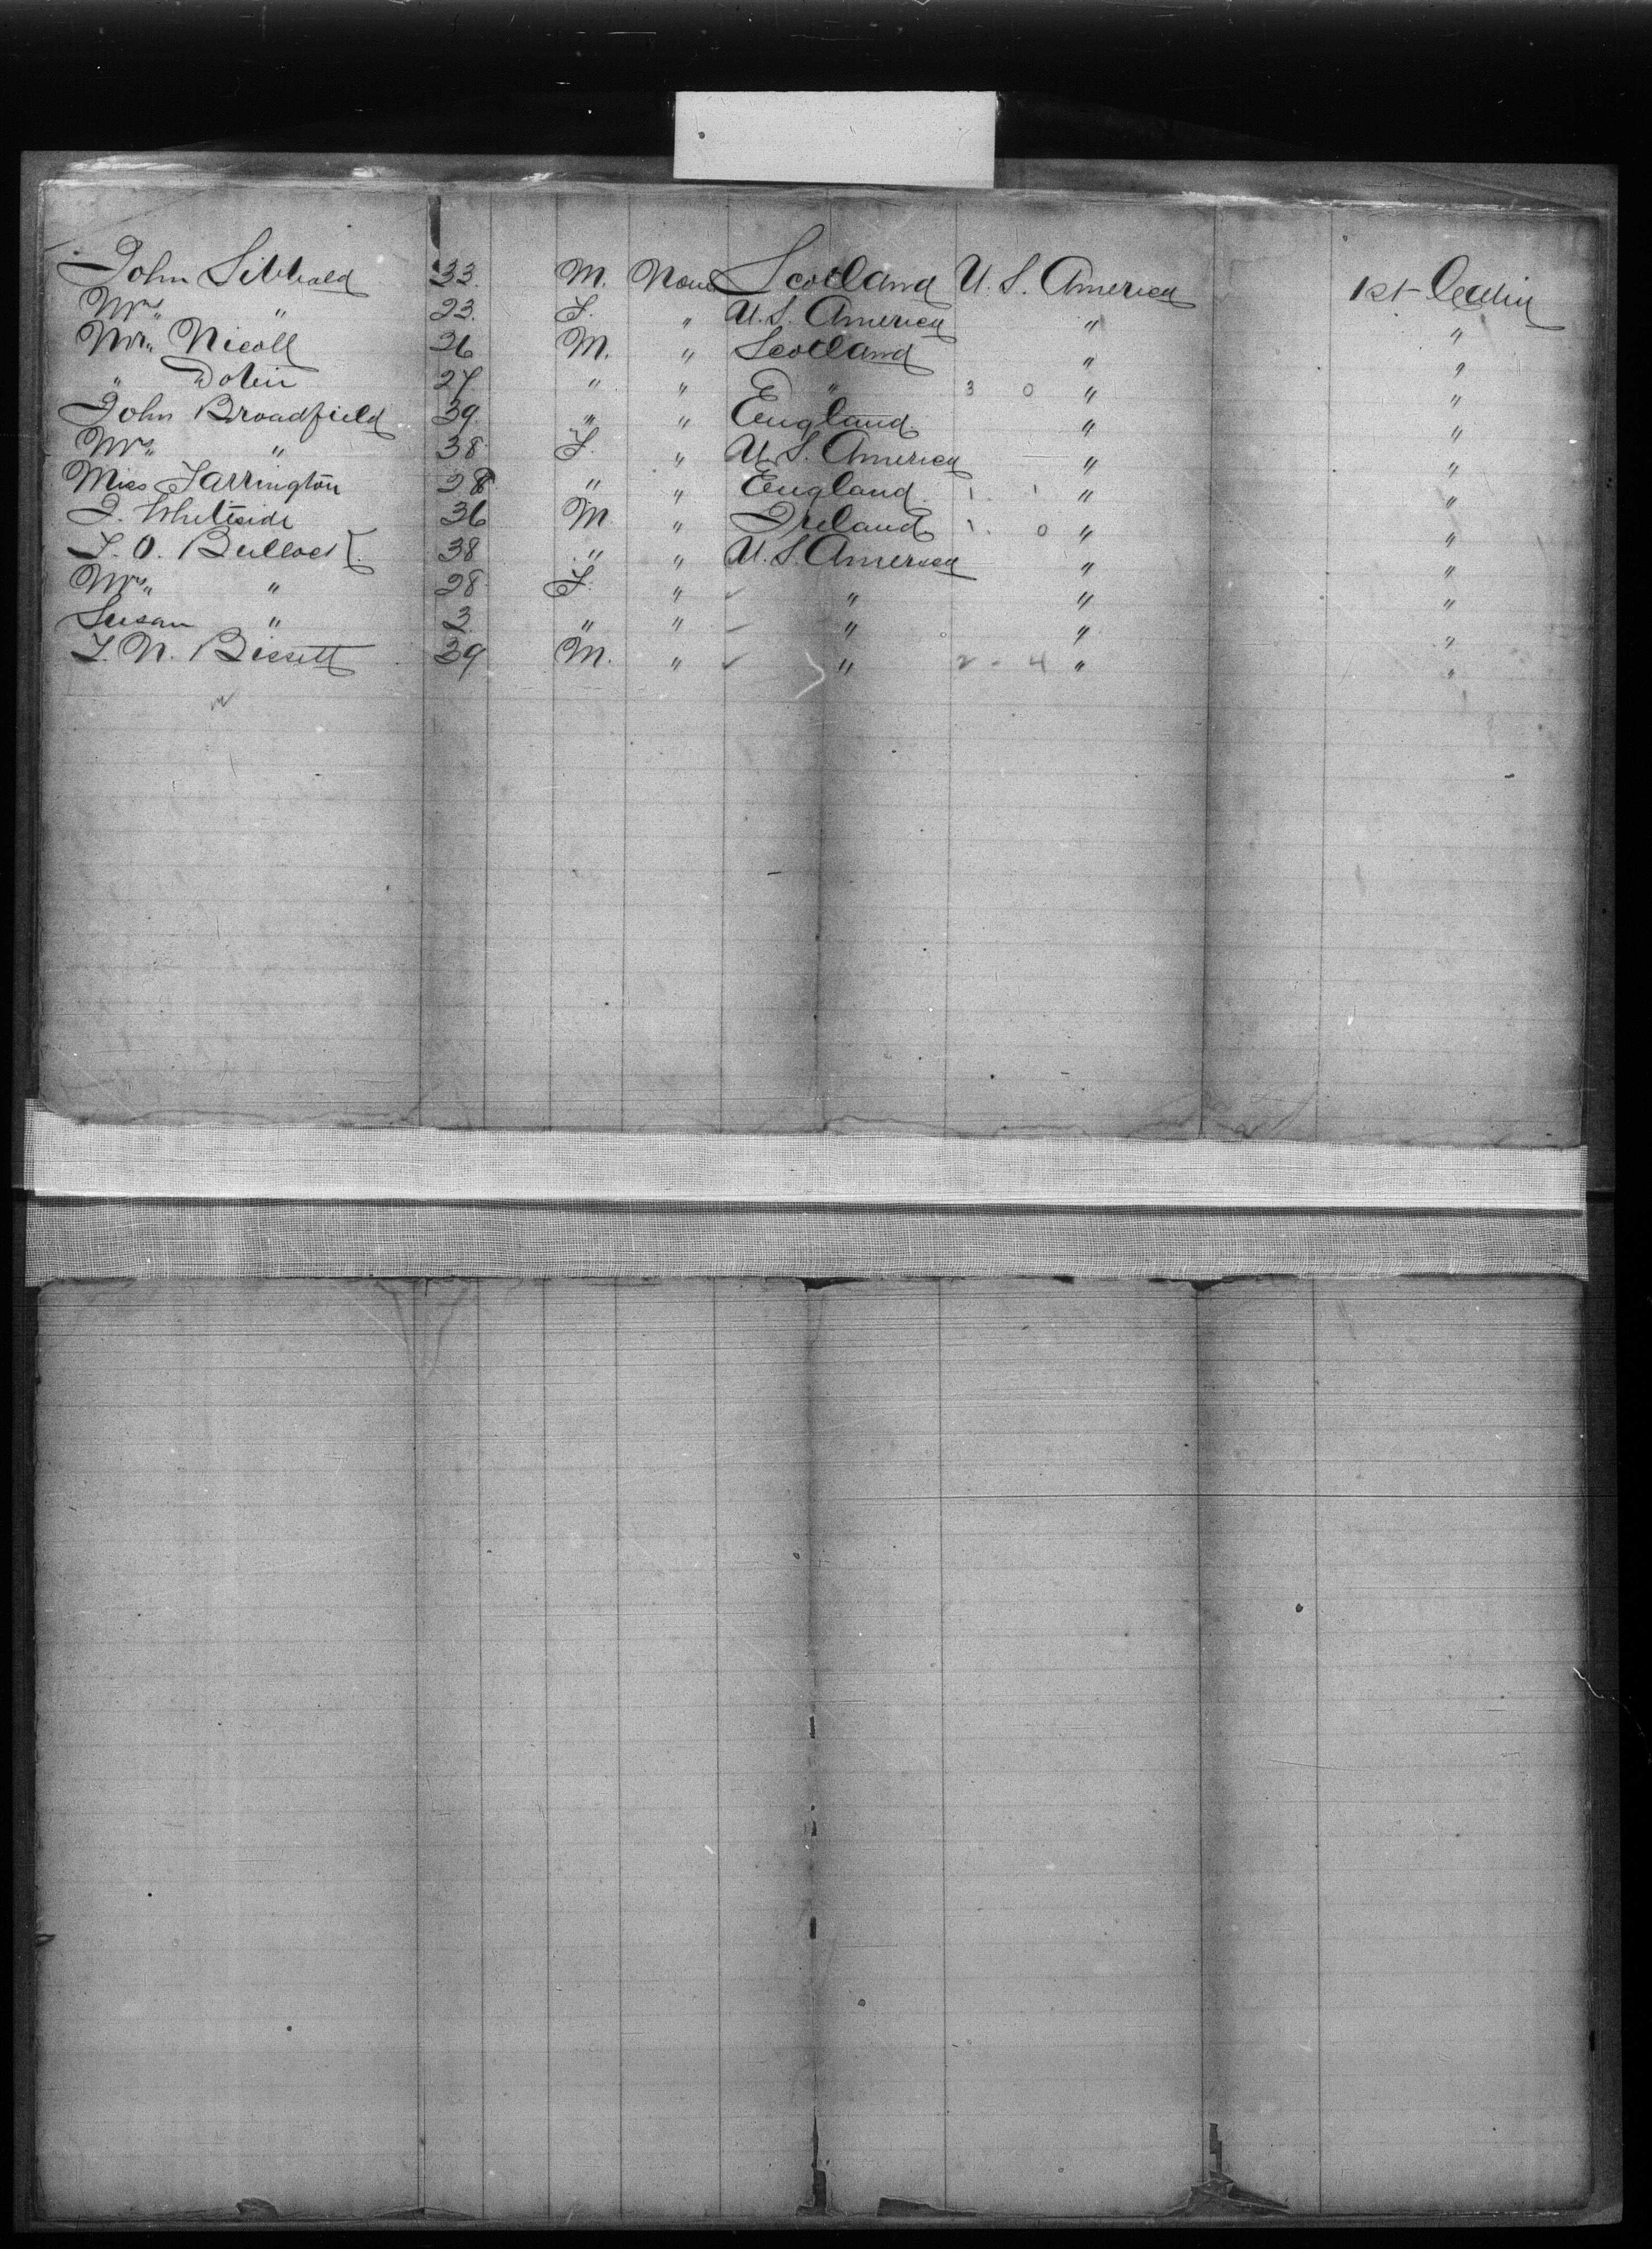 John Sibbald 33. M. None Scotland U. S. America 1st Cabin
Mrs " 23. F. " U. S. America " "
Mr. Nicoll 26 M. " Scotland " "
" 27 " " " 3 0 " "
John Broadfield 39 " " England. " "
Mrs " 38 F. " U. S. America " "
Miss Farrington 28 " " England. 1. 1 " "
J. Whiteside 36 M " Ireland 1. 0 " "
T. O. Bullock 38 " " U. S. America " "
Mrs " 28 F. " ✓ " " "
Susan " 3 " " ✓ " " "
T. N. Bissett 39 M. " ✓ " 2 - 4 " "